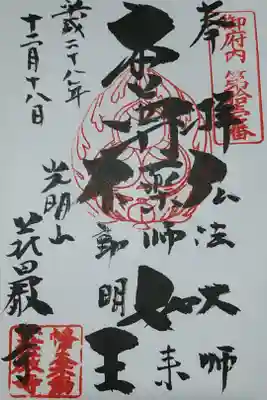 御府内
第拾壹番
奉拝
弘法大師
本尊薬師如来
不動明王
平成二十八年
十二月十八日
光明山
荘厳寺